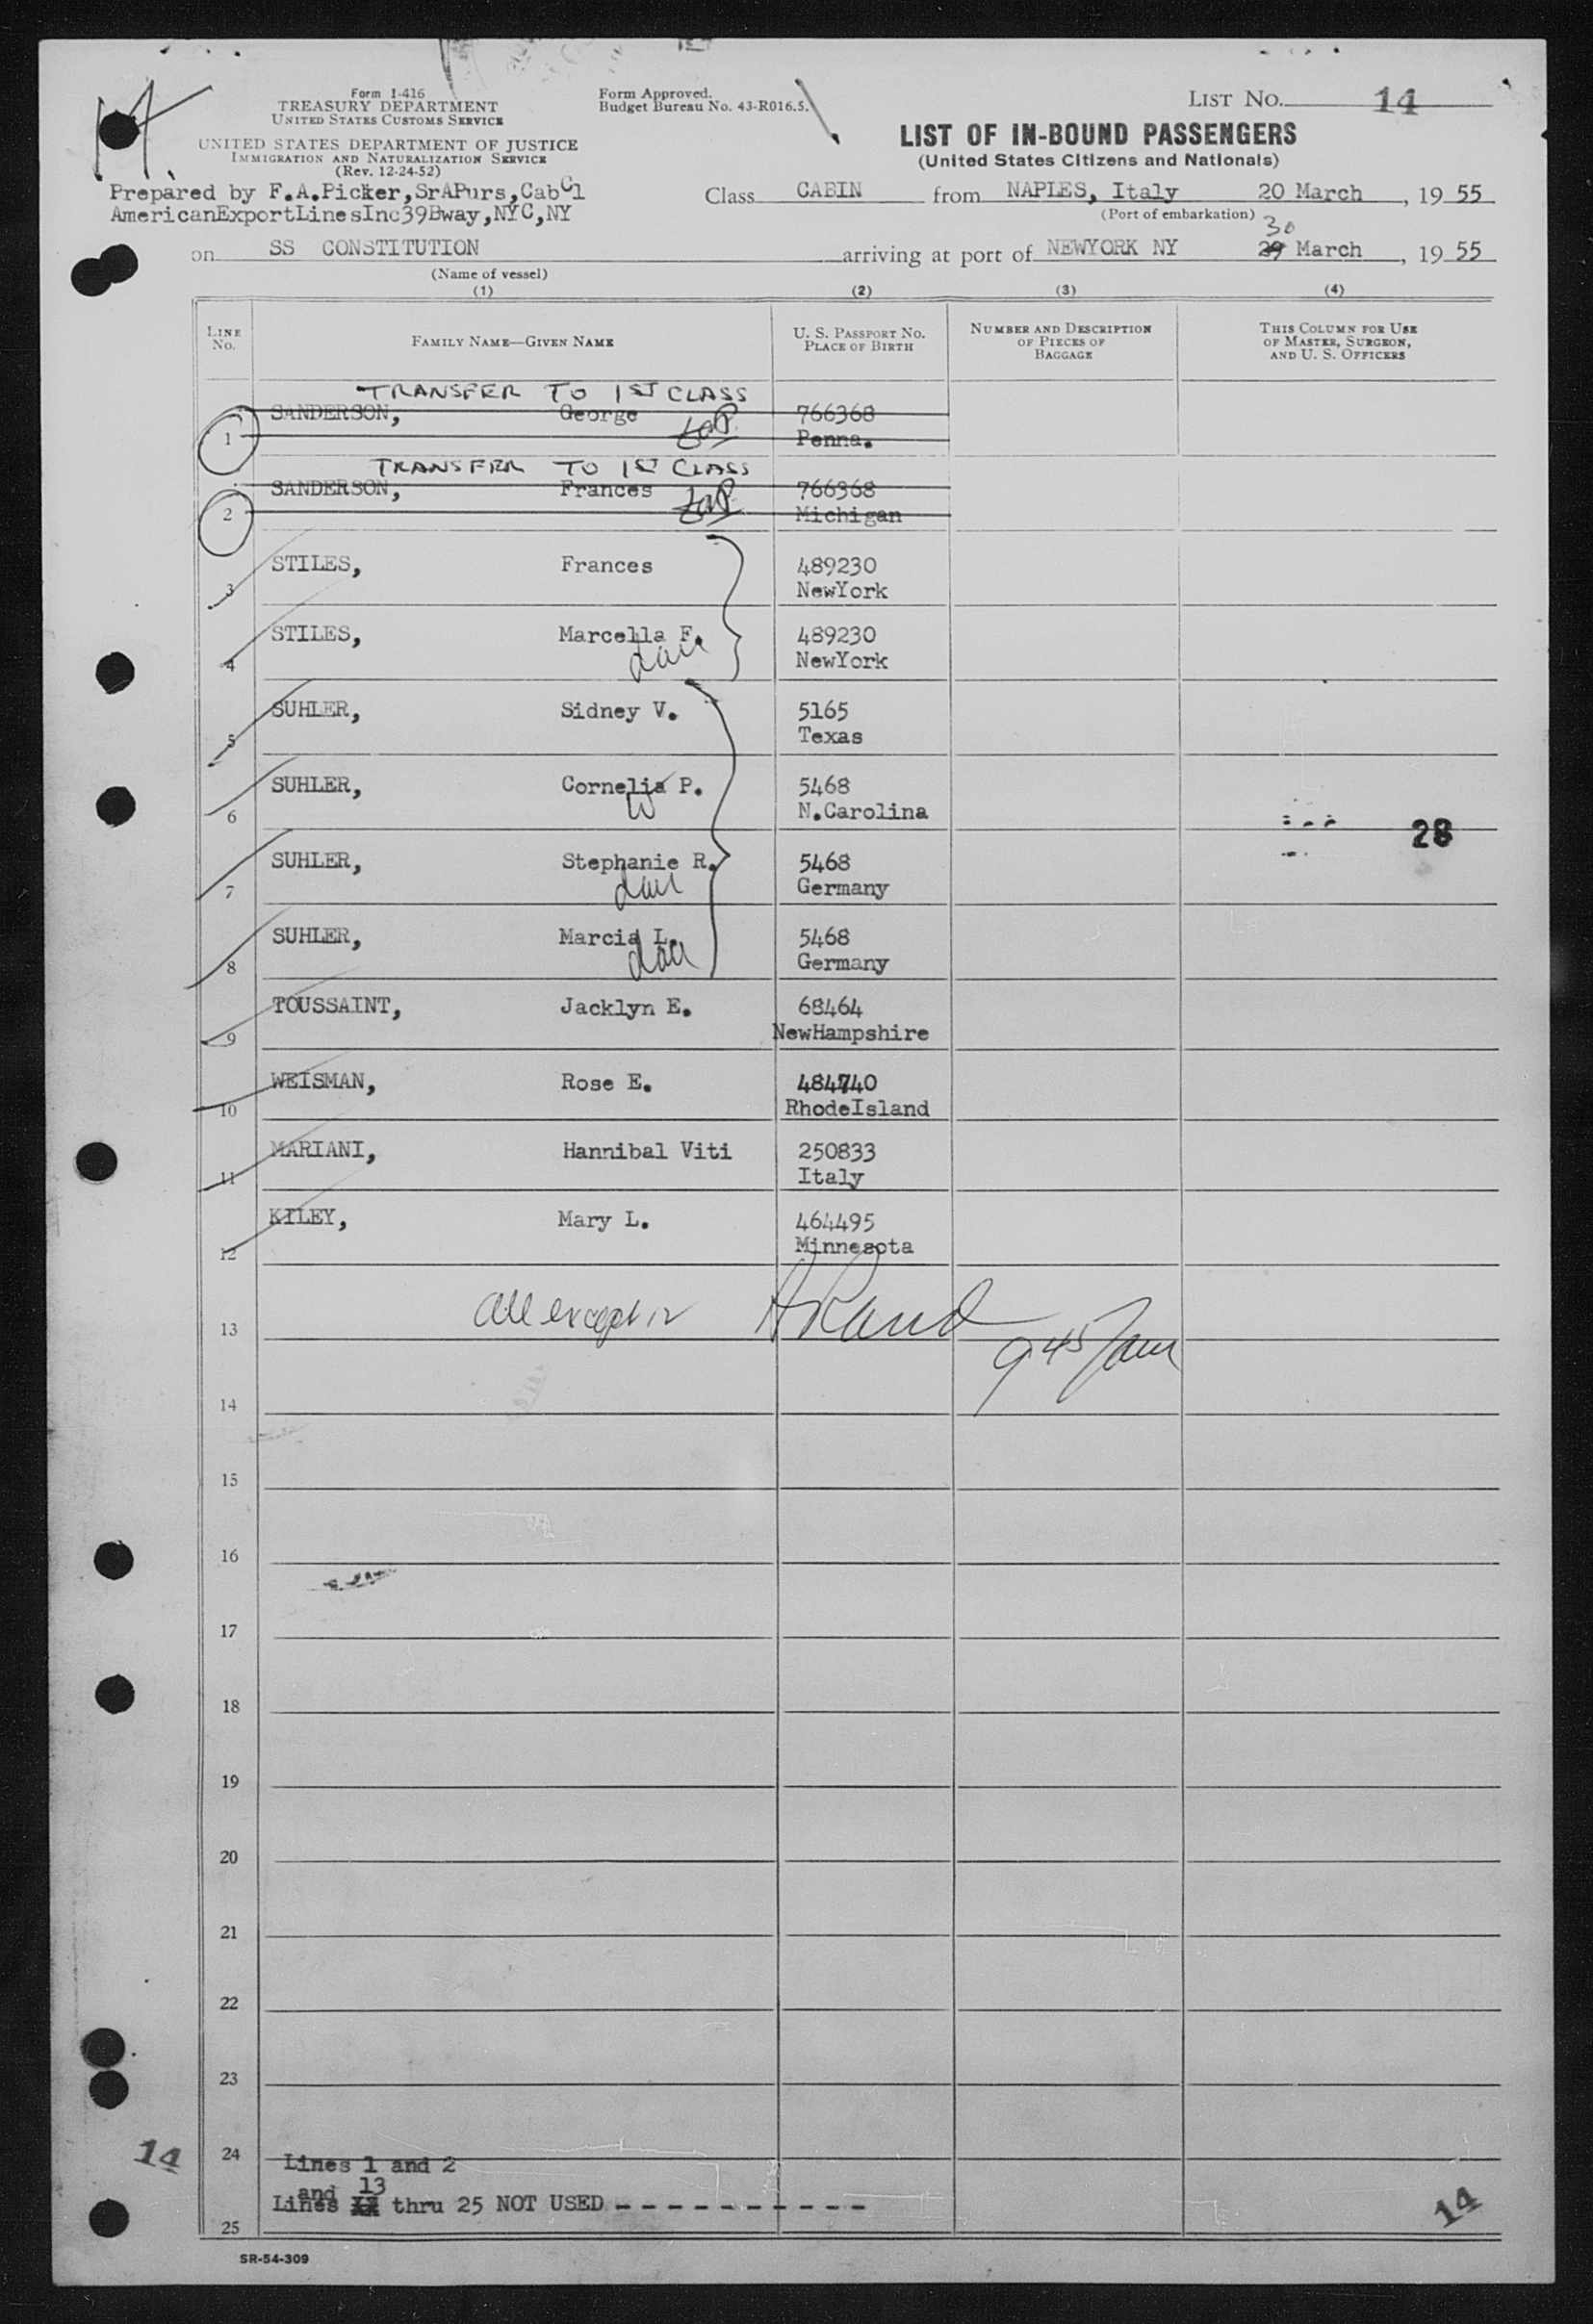 Form I-416
TREASURY DEPARTMENT
UNITED STATES CUSTOMS SERVICE
UNITED STATES DEPARTMENT OF JUSTICE
IMMIGRATION AND NATURALIZATION SERVICE
(Rev. 12-24-52)
Form Approved.
Budget Bureau No. 43-R016.5.
LIST NO. 14
LIST OF IN-BOUND PASSENGERS
(United States Citizens and Nationals)
Prepared by F.A.Picker,SrAPurs,CabCl
AmericanExportLinesInc39Bway,NYC,NY
Class CABIN from NAPLES, Italy 20 March, 19 55
(Port of embarkation)
30
on SS CONSTITUTION arriving at port of NEWYORK NY 29 March, 19 55
(Name of vessel)
(1) (2) (3) (4)
LINE NO.
FAMILY NAME—GIVEN NAME
U. S. PASSPORT NO.
PLACE OF BIRTH
NUMBER AND DESCRIPTION
OF PIECES OF
BAGGAGE
THIS COLUMN FOR USE
OF MASTER, SURGEON,
AND U. S. OFFICERS
TRANSFER TO 1ST CLASS
SANDERSON, George 766368
1 Penna.
TRANSFER TO 1ST CLASS
SANDERSON, Frances 766368
2 Michigan
STILES, Frances 489230
3 NewYork
STILES, Marcella F. 489230
4 dau NewYork
SUHLER, Sidney V. 5165
5 Texas
SUHLER, Cornelia P. 5468
6 W N.Carolina
28
SUHLER, Stephanie R. 5468
7 dau Germany
SUHLER, Marcia L. 5468
8 dau Germany
TOUSSAINT, Jacklyn E. 68464
9 NewHampshire
WEISMAN, Rose E. 484740
10 RhodeIsland
MARIANI, Hannibal Viti 250833
11 Italy
KILEY, Mary L. 464495
12 Minnesota
13 All except 12 HRand
9 45 am
14
15
16
17
18
19
20
21
22
23
24
14
Lines 1 and 2
and 13
Lines 12 thru 25 NOT USED - - - - - - - - - -
25
14
SR-54-309